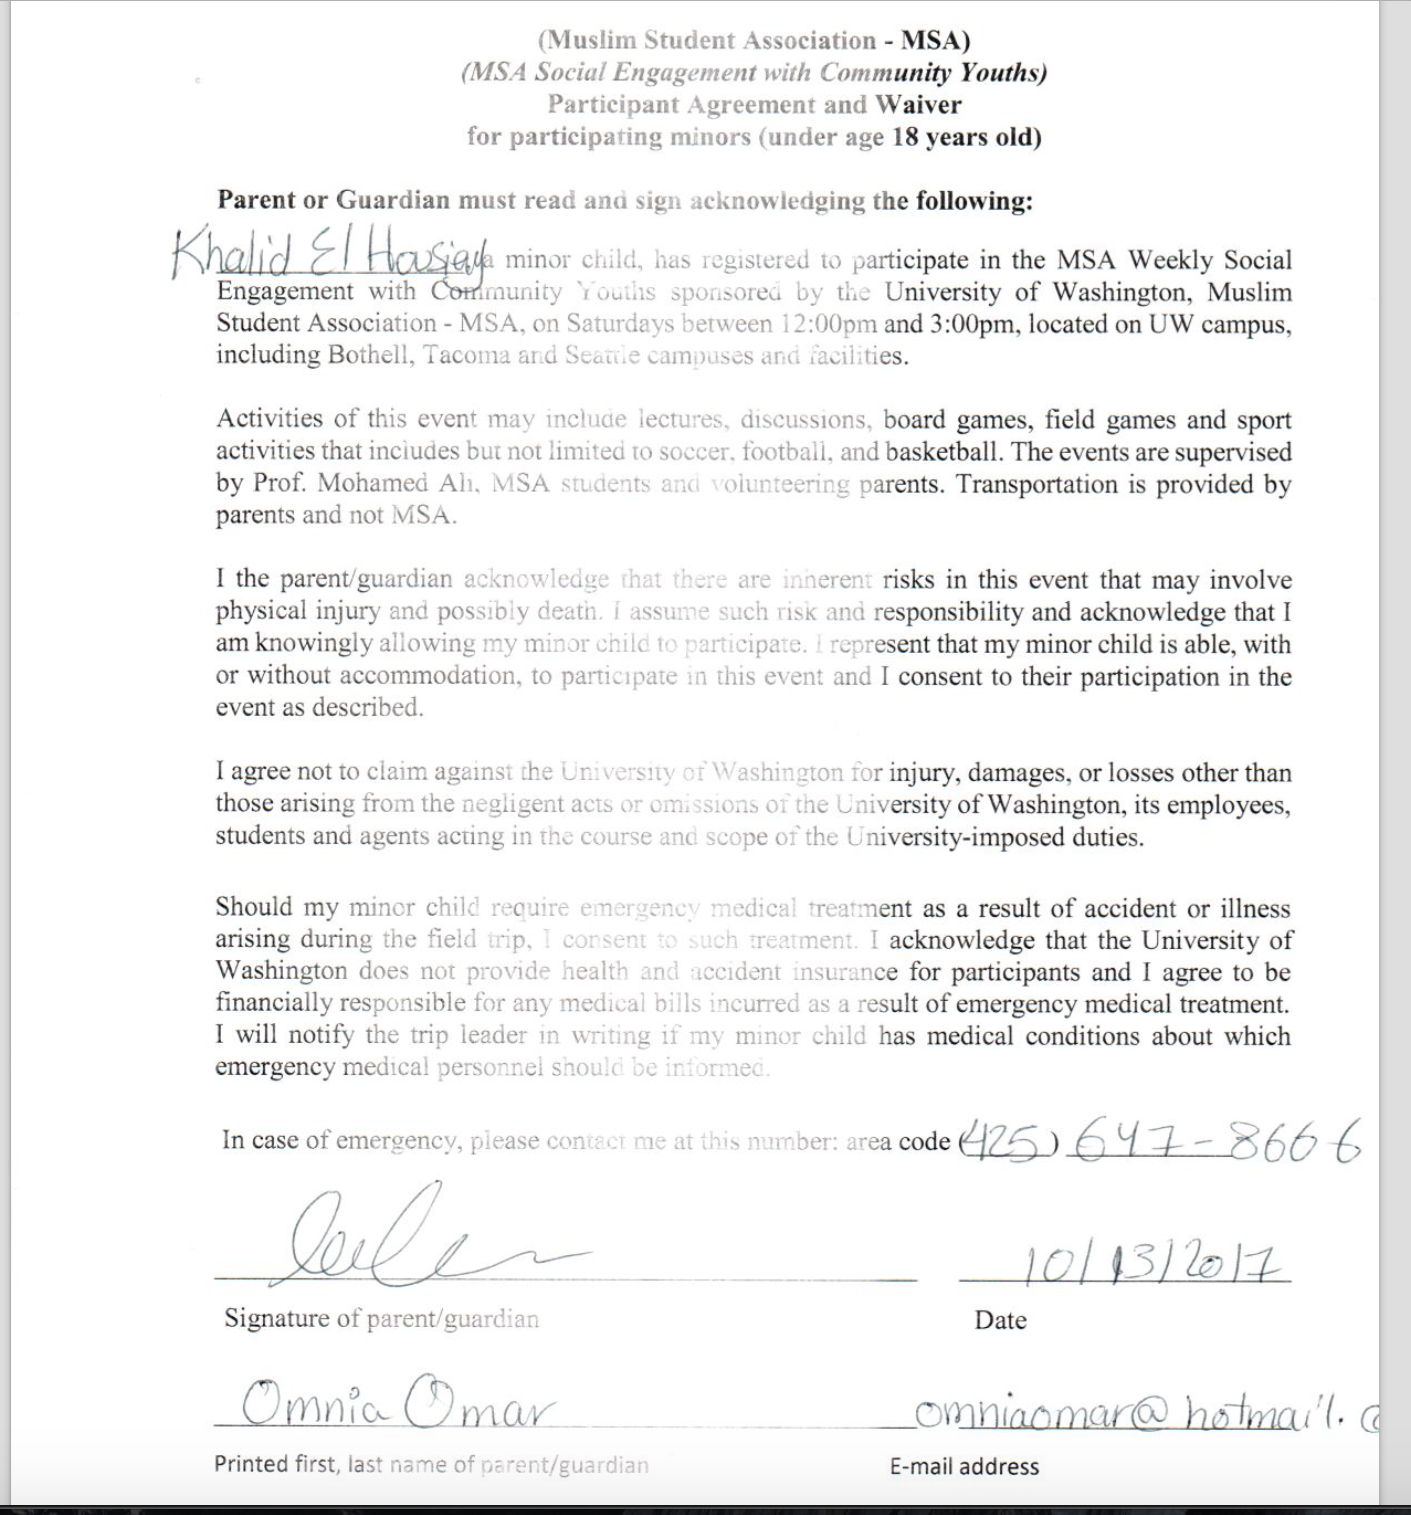 (Muslim Student Association - MSA)
(MSA Social Engagement with Community Youths)
Participant Agreement and Waiver
for participating minors (under age 18 years old)
Parent or Guardian must read and sign acknowledging the following:
Khalid El a minor child, has registered to participate in the MSA Weekly Social
Engagement with Community Youths sponsored by the University of Washington, Muslim
Student Association - MSA, on Saturdays between 12:00pm and 3:00pm, located on UW campus,
including Bothell, Tacoma and Seattle campuses and facilities.
Activities of this event may include lectures, discussions, board games, field games and sport
activities that includes but not limited to soccer, football, and basketball. The events are supervised
by Prof. Mohamed Ali, MSA students and volunteering parents. Transportation is provided by
parents and not MSA.
I the parent/guardian acknowledge that there are inherent risks in this event that may involve
physical injury and possibly death. I assume such risk and responsibility and acknowledge that I
am knowingly allowing my minor child to participate. I represent that my minor child is able, with
or without accommodation, to participate in this event and I consent to their participation in the
event as described.
I agree not to claim against the University of Washington for injury, damages, or losses other than
those arising from the negligent acts or omissions of the University of Washington, its employees,
students and agents acting in the course and scope of the University-imposed duties.
Should my minor child require emergency medical treatment as a result of accident or illness
arising during the field trip, I consent to such treatment. I acknowledge that the University of
Washington does not provide health and accident insurance for participants and I agree to be
financially responsible for any medical bills incurred as a result of emergency medical treatment.
I will notify the trip leader in writing if my minor child has medical conditions about which
emergency medical personnel should be informed.
In case of emergency, please contact me at this number: area code (425) 647-8666
10/13/2017
Signature of parent/guardian Date
Omnia Omar omniaomar@hotmail.c
Printed first, last name of parent/guardian E-mail address